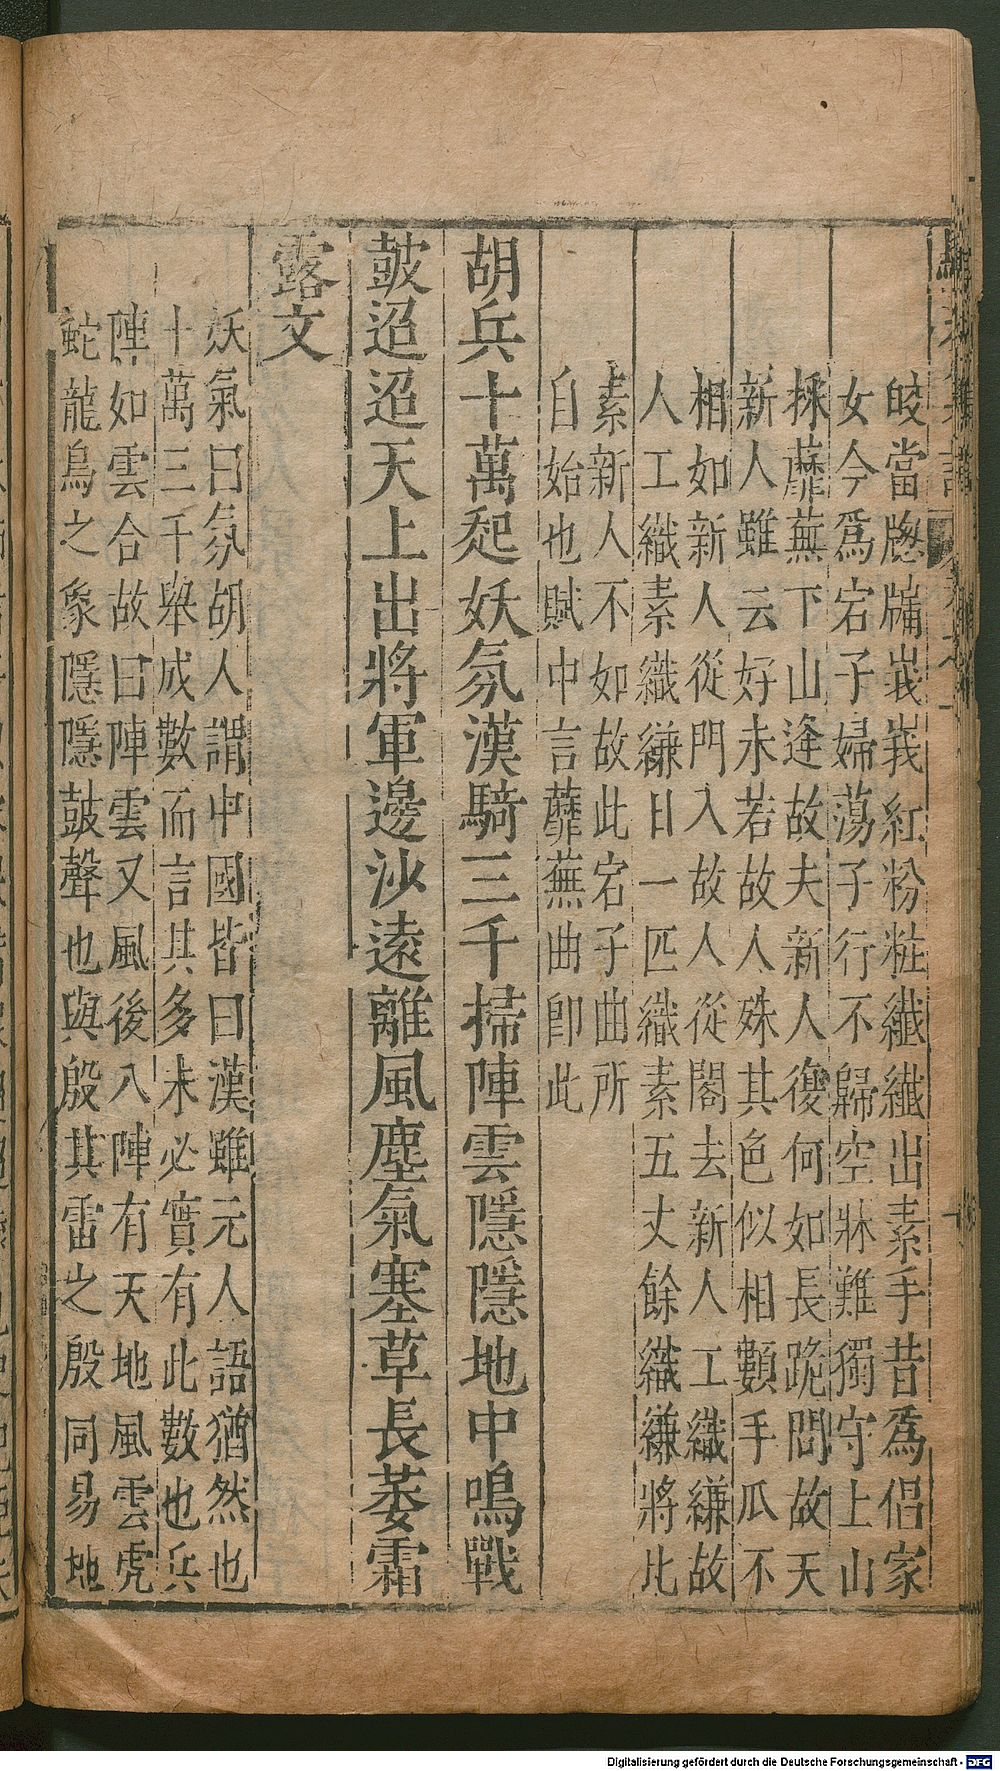 皎當牕牖峩峩紅粉粧纖纖出素手昔爲倡家
女今爲宕子婦蕩子行不歸空牀難獨守上山
採蘼蕪下山逢故夫新人復何如長跪問故夫
新人雖云好未若故人殊其色似相類手爪不
相如新人從門入故人從閤去新人工織縑故
人工織素織縑日一匹織素五丈餘織縑將比
素新人不如故此宕子曲所
自始也賦中言蘼蕪曲卽此
胡兵十萬起妖氛漢騎三千掃陣雲隱隱地中鳴戰
鼓迢迢天上出將軍邊沙遠離風塵氣塞草長萎霜
露文
妖氣曰氛胡人謂中國皆曰漢雖元人語猶然也
十萬三千舉成數而言其多未必實有此數也兵
陣如雲合故曰陣雲又風後八陣有天地風雲虎
蛇龍鳥之象隱隱鼓聲也與殷其雷之殷同易地
Digitalisierung gefördert durch die Deutsche Forschungsgemeinschaft - DFG